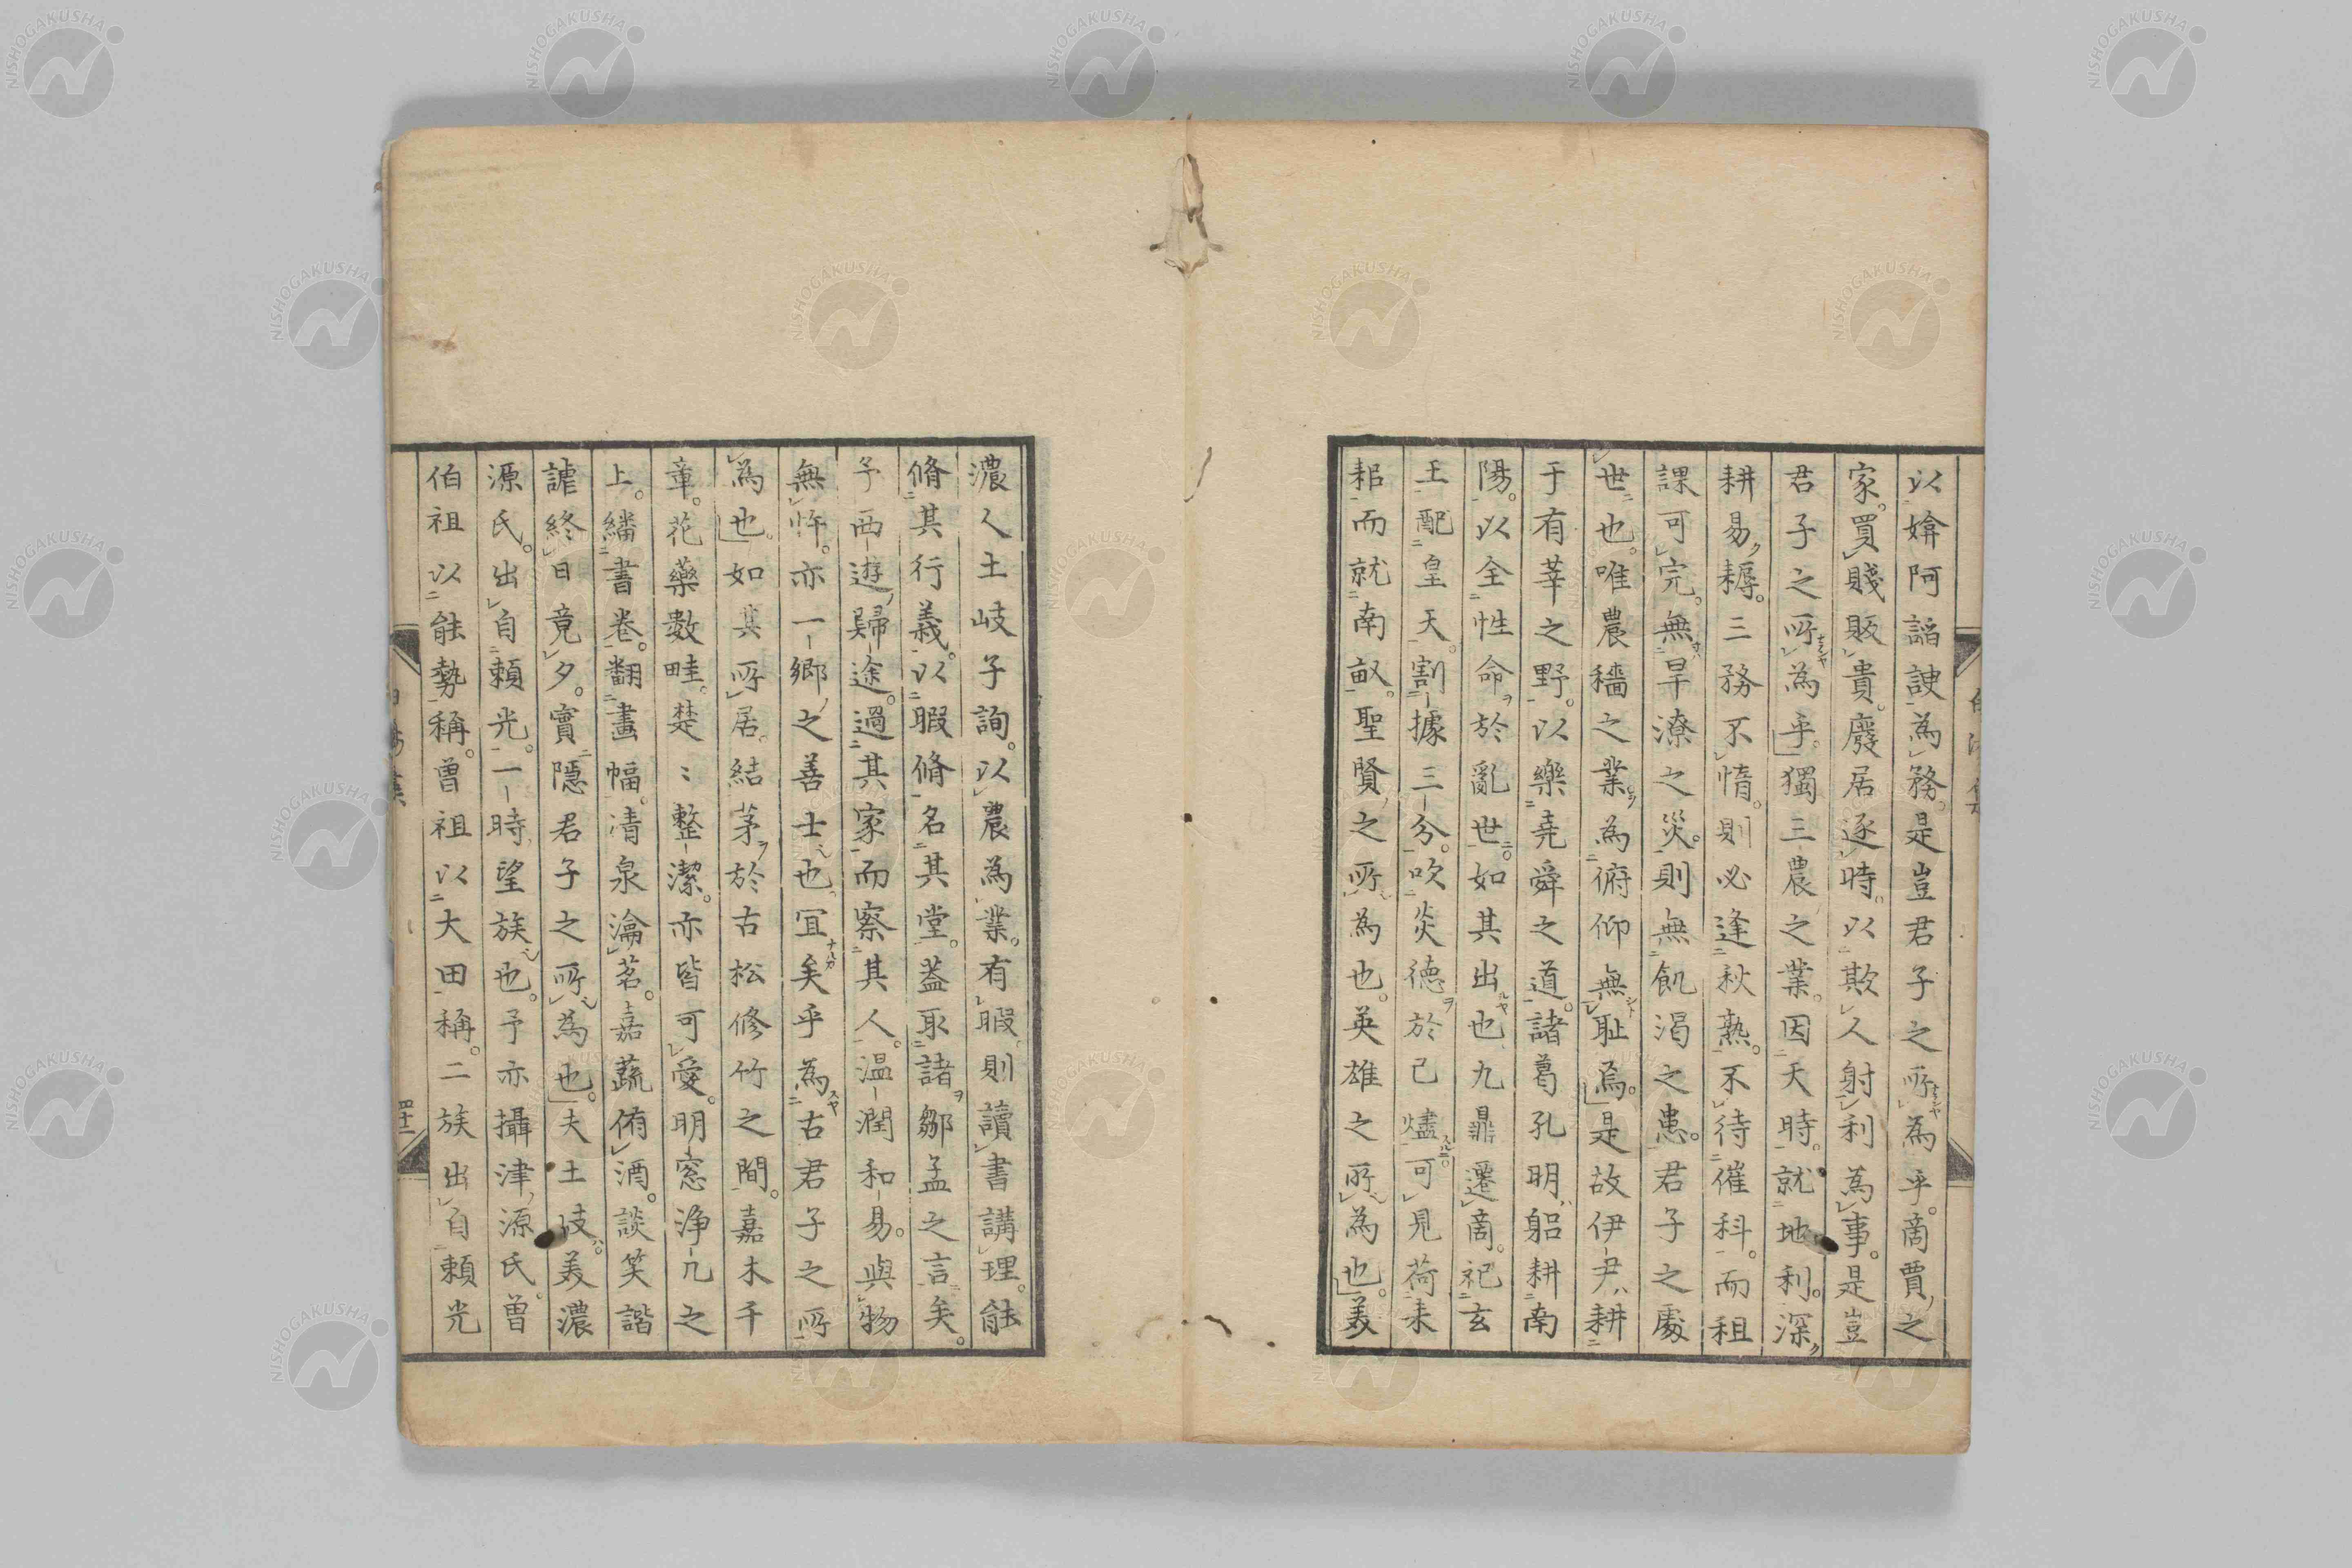 以媕阿諂諛為務。是豈君子之所為乎。商賈之
家。買賤。販貴。廢居逐時。以欺人射利為事。是豈
君子之所為乎。獨三農之業。因天時。就地利。深
耕易耨。三務不惰。則必逢秋熟。不待催科。而租
課可完。無旱潦之災。則無飢渇之患。君子之處
世也。唯農穡之業。為俯仰無耻焉。是故伊尹耕
于有莘之野。以樂堯舜之道。諸葛孔明躬耕南
陽。以全性命於亂世。如其出也九鼎遷商。祀玄
王配皇天。割據三分。吹炎德於己燼。可見荷耒
耜而就南畝。聖賢之所為也。英雄之所為也。美
濃人土岐子詢。以農為業。有暇則讀書講理。能
脩其行義。以暇脩名其堂。蓋取諸鄒孟之言矣。
予西遊歸途。過其家而察其人。温潤和易。與物
無忤。亦一鄉之善士也。冝矣乎為古君子之所
為也。如其所居。結茅於古松修竹之間。嘉木千
章。花藥數畦。楚〻整潔。亦皆可愛。明窓浄几之
上。繙書卷。翻畫幅。清泉瀹茗。嘉蔬侑酒。談笑諧
謔終日竟夕。實隱君子之所為也。夫土岐美濃
源氏。出自賴光。一時望族也。予亦攝津源氏。曽
伯祖以能勢稱。曽祖以大田稱。二族出自賴光